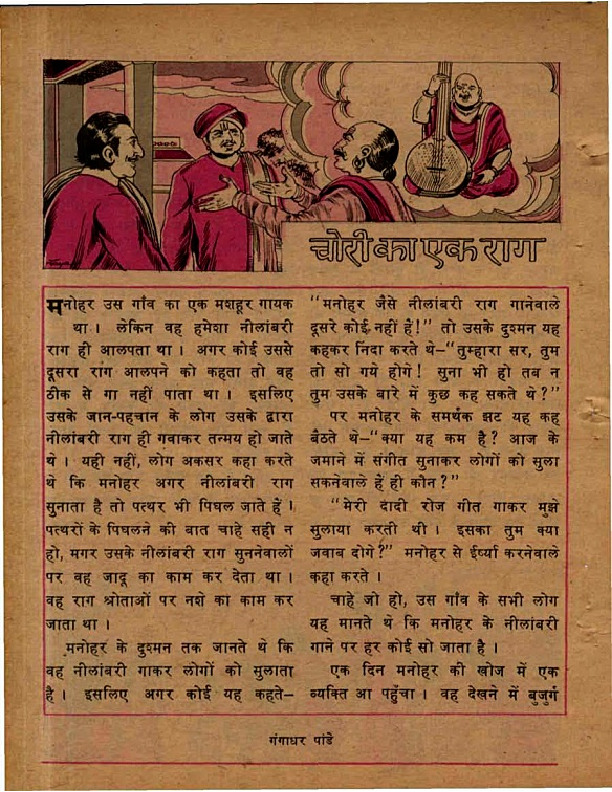 चोरी का एक राग
मनोहर उस गाँव का एक मशहूर गायक
था । लेकिन वह हमेशा नीलांबरी
राग ही आलपता था । अगर कोई उससे
दूसरा राग आलपने को कहता तो वह
ठीक से गा नहीं पाता था । इसलिए
उसके जान-पहचान के लोग उसके द्वारा
नीलांबरी राग ही गवाकर तन्मय हो जाते
थे । यही नहीं, लोग अकसर कहा करते
थे कि मनोहर अगर नीलांबरी राग
सुनाता है तो पत्थर भी पिघल जाते हैं ।
पत्थरों के पिघलने की बात चाहे सही न
हो, मगर उसके नीलांबरी राग सुननेवालों
पर वह जादू का काम कर देता था ।
वह राग श्रोताओं पर नशे का काम कर
जाता था ।
मनोहर के दुश्मन तक जानते थे कि
वह नीलांबरी गाकर लोगों को सुलाता
है । इसलिए अगर कोई यह कहते–
“मनोहर जैसे नीलांबरी राग गानेवाले
दूसरे कोई नहीं हैं!” तो उसके दुश्मन यह
कहकर निंदा करते थे–“तुम्हारा सर, तुम
तो सो गये होगे! सुना भी हो तब न
तुम उसके बारे में कुछ कह सकते थे?”
पर मनोहर के समर्थक झट यह कह
बैठते थे–“क्या यह कम है? आज के
जमाने में संगीत सुनाकर लोगों को सुला
सकनेवाले हैं ही कौन?”
“मेरी दादी रोज गीत गाकर मुझे
सुलाया करती थी । इसका तुम क्या
जवाब दोगे?” मनोहर से ईर्ष्या करनेवाले
कहा करते ।
चाहे जो हो, उस गाँव के सभी लोग
यह मानते थे कि मनोहर के नीलांबरी
गाने पर हर कोई सो जाता है ।
एक दिन मनोहर की खोज में एक
व्यक्ति आ पहुँचा । वह देखने में बुजुर्ग
गंगाधर पांडे